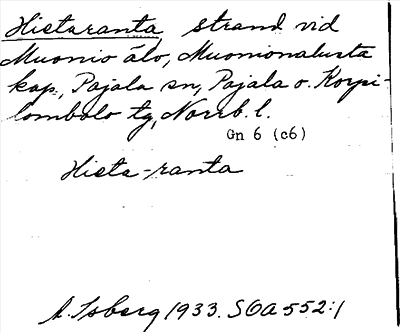 Hietaranta strand vid
Muonio älv, Muonionalusta
kap., Pajala sn, Pajala o. Korpi-
lombolo tg, Norrb. l.
Gn 6 (c6)
Hieta-ranta
A. Isberg 1933. SOA 552:1